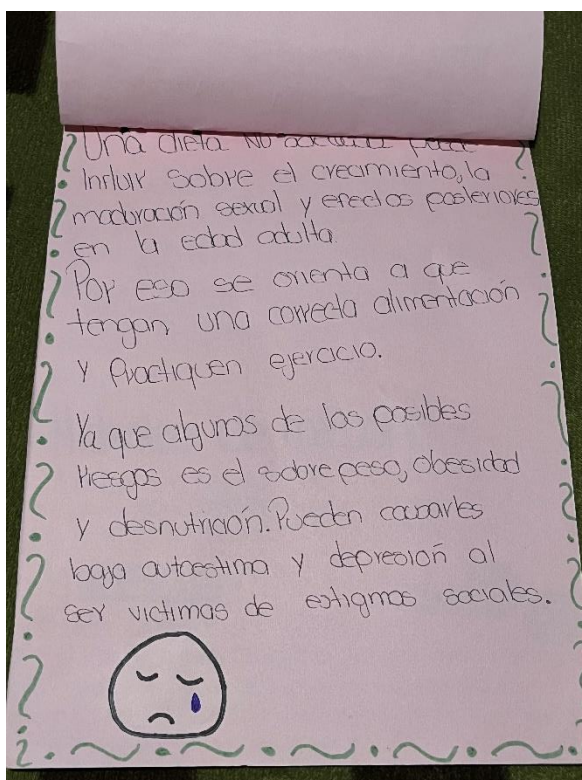 Una dieta No adecuada puede
Influir sobre el crecimiento, la
maduración sexual y efectos posteriores
en la edad adulta
Por eso se orienta a que
tengan una correcta alimentación
y Practiquen ejercicio.
Ya que algunos de los posibles
Riesgos es el sobrepeso, obesidad
y desnutrición. Pueden causarles
baja autoestima y depresión al
ser victimas de estigmas sociales.